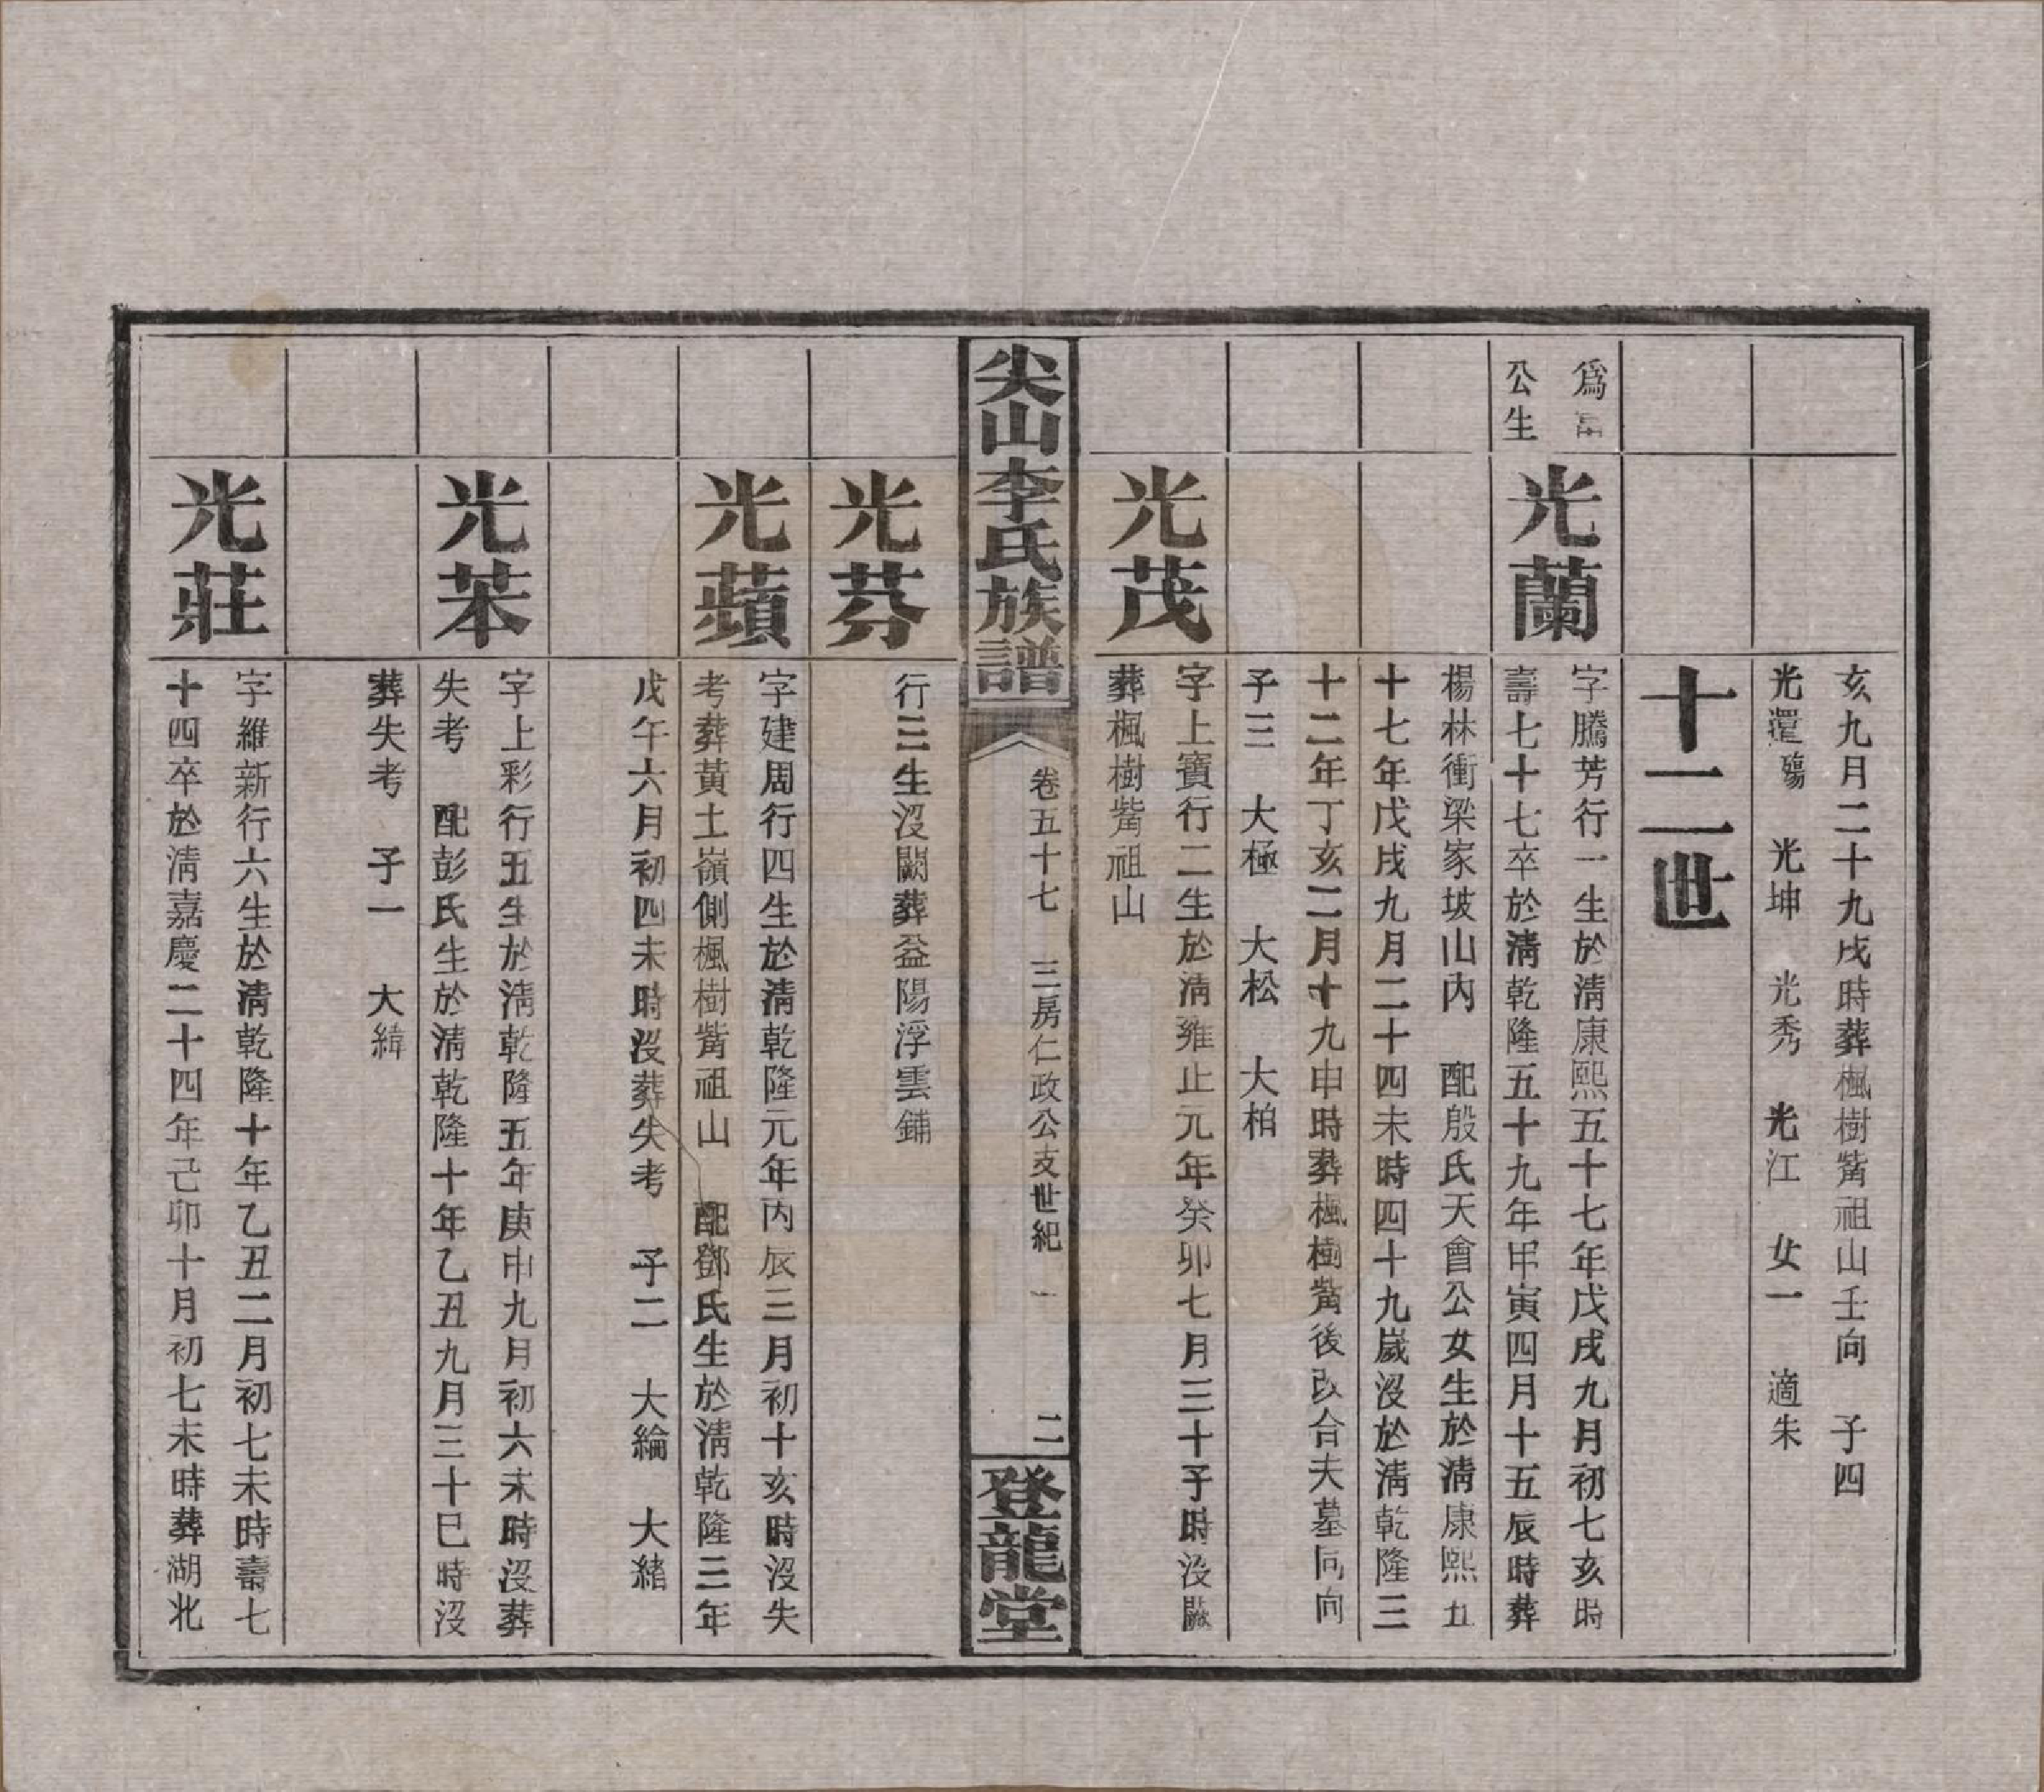 亥九月二十九戌時葬楓樹觜祖山壬向　子四
光還殤　光坤　光秀　光江　女一　適朱
十二世
爲富
公生
光蘭
字騰芳行一生於淸康熙五十七年戊戌九月初七亥時
壽七十七卒於淸乾隆五十九年甲寅四月十五辰時葬
楊林衝梁家坡山內　配殷氏天會公女生於淸康熙五
十七年戊戌九月二十四未時四十九歲沒於淸乾隆三
十二年丁亥二月十九申時葬楓樹觜後改合夫墓同向
子三　大極　大松　大柏
光茂
字上寶行二生於淸雍正元年癸卯七月三十子時沒闕
葬楓樹觜祖山
尖山李氏族譜
卷五十七　三房仁政公支世紀一
二
登龍堂
光芬
行三生沒闕葬益陽浮雲鋪
光蘋
字建周行四生於淸乾隆元年丙辰三月初十亥時沒失
考葬黃土嶺側楓樹觜祖山　配鄧氏生於淸乾隆三年
戊午六月初四未時沒葬失考　子二　大綸　大緒
光苯
字上彩行五生於淸乾隆五年庚申九月初六未時沒葬
失考　配彭氏生於淸乾隆十年乙丑九月三十巳時沒
葬失考　子一　大緯
光莊
字維新行六生於淸乾隆十年乙丑二月初七未時壽七
十四卒於淸嘉慶二十四年己卯十月初七未時葬湖北